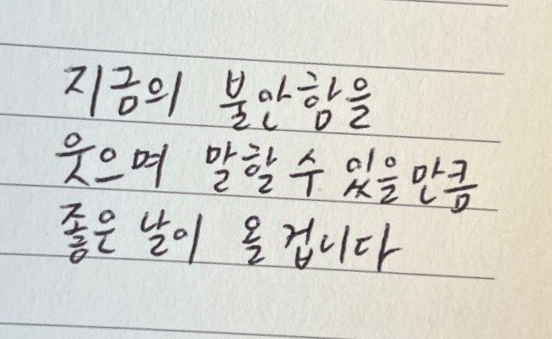 지금의 불안함을
웃으며 말할 수 있을 만큼
좋은 날이 올 겁니다